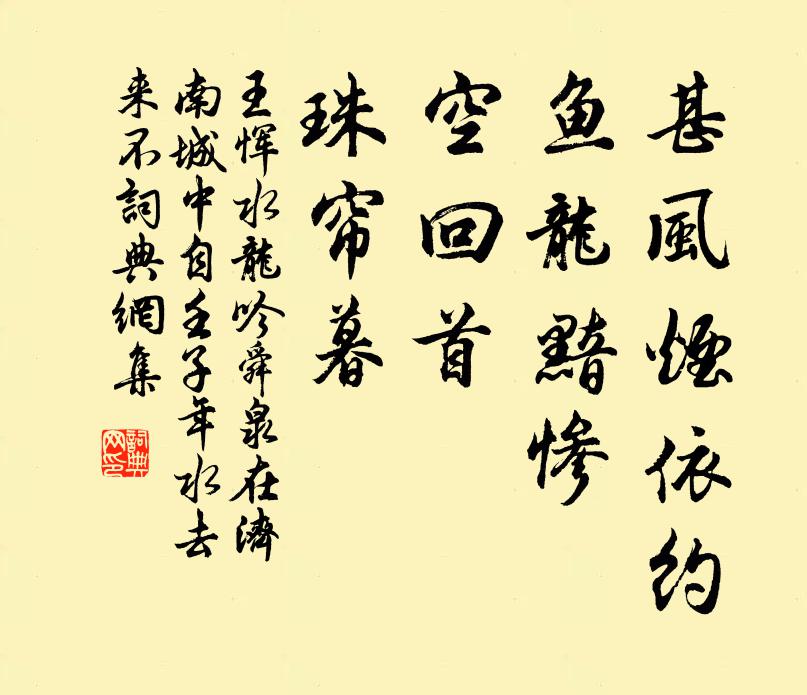 甚風煙依約
魚龍黯慘
空回首
珠帘暮
王惲水龍吟舜泉在濟
南城中自壬子年水去
来不詞典網集
詞典网印